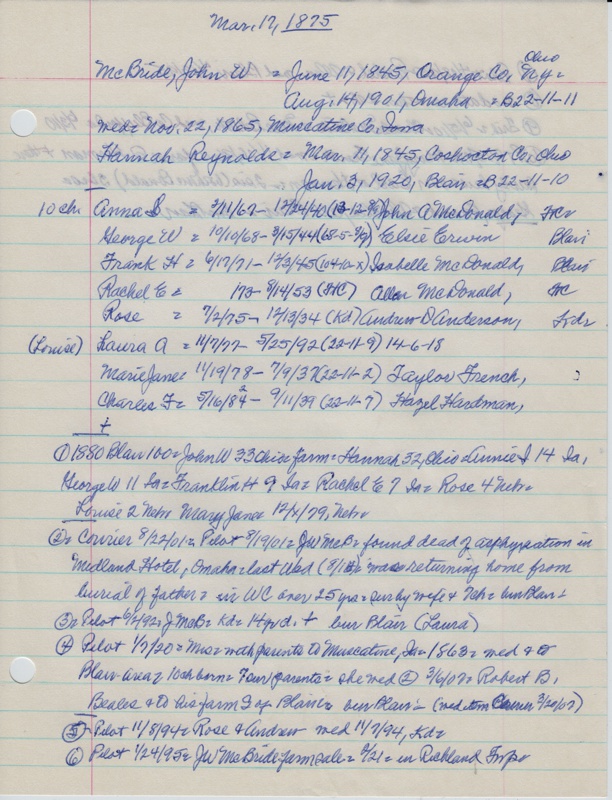 Mar. 17, 1875
Ohio
McBride, John W = June 11, 1845, Orange Co, Ny =
Aug. 14, 1901, Omaha = B22-11-11
med = Nov. 22, 1865, Muscatine Co. Iowa
Hannah Reynolds = Mar. 11, 1845, Cochocton Co, Ohio
Jan. 3, 1920, Blair = B22-11-10
10 ch. Anna = 3/11/67 - 12/24/40 John A McDonald,
George W = 10/10/68 - 3/15/44 (68-5- Elsie Erwin Blair
Frank H = 6/17/71 - 12/3/45 Isabelle McDonald, Blair
Rachel E = 173 - 8/14/53 Allen McDonald,
Rose = 7/2/75 - 12/13/34 (Kd) Andrew D Anderson, Kd
(Louise) Laura A = 11/7/77 - 5/25/92 (22-11-9) 14-6-18
Marie Jane = 11/19/78 - 7/9/37 (22-11-2) Taylor French,
Charles F = 5/16/84 - 9/11/39 (22-11-7) Hazel Hardman,
+
① 1880 Blair 100 = John W 33 Ohio = farm = Hannah 32, Ohio = Annie I 14 Ia,
George W 11 Ia = Franklin H 9 Ia = Rachel E 7 Ia = Rose 4 Neb =
Louise 2 Neb = Mary Jane 12/x/79, Neb =
② = Courier 8/22/01 = Pilot 8/19/01 = JW McB = found dead of asphyxation in
Midland Hotel, Omaha = last Wed = was returning home from
burial of father = in WC over 25 yrs = sur by wife + 7 ch = bur Blair =
③ = Pilot 6/2/92 = J McB = Kd = 14 yr d. + bur Blair (Laura)
④ Pilot 1/7/20 = Mrs = with parents to Muscatine, Ia = 1863 = med + to
Blair area = 10 ch born = Four parents = she wed ② 3/6/07 = Robert B.
Beales + to his farm Blair = bur Blair = (wed Courier 3/20/07)
⑤ Pilot 11/8/94 = Rose + Andrew wed 11/7/94, Kd =
⑥ Pilot 1/24/95 = JW McBride farm sale = 2/21 = in Richland Twp